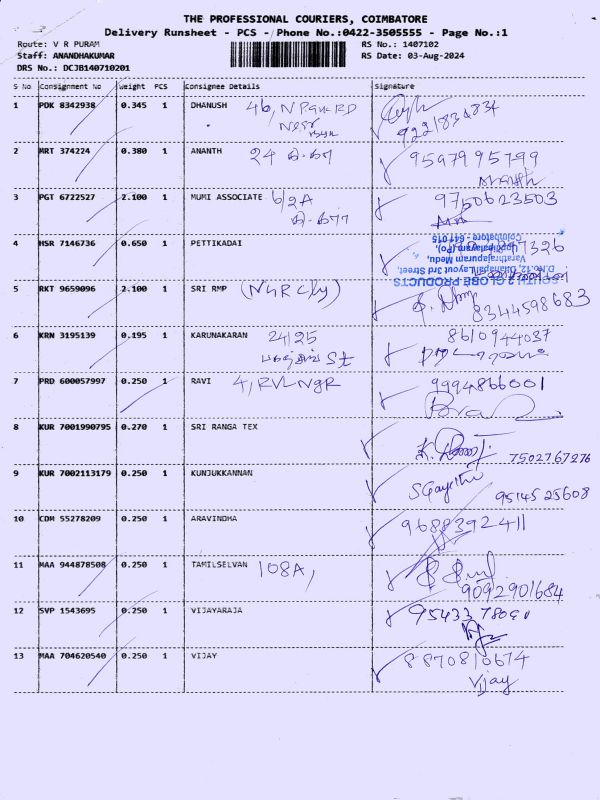 THE PROFESSIONAL COURIERS, COIMBATORE
Delivery Runsheet - PCS - Phone No.:0422-3505555 - Page No.:1
Route: V R PURAM
RS No.: 1407102
Staff: ANANDHAKUMAR
RS Date: 03-Aug-2024
DRS No.: DCJB140710201
S No Consignment No Weight PCS Consignee Details Signature
1 PDK 8342938 0.345 1 DHANUSH 46,
2 MRT 374224 0.380 1 ANANTH 24 9597995799
3 PGT 6722527 2.100 1 MUMI ASSOCIATE 6/2A 9750623503
4 HSR 7146736 0.650 1 PETTIKADAI
SOUTH 2 GLOBE PRODUCTS
D.No.12, Dhanapal Layout 3rd Street,
Varathrajapuram Medu,
Uppilipalayam (Po),
Coimbatore - 641 015
5 RKT 9659096 2.100 1 SRI RMP (NGR Cly) 8344598683
6 KRN 3195139 0.195 1 KARUNAKARAN 24/25 8610944037
St
7 PRD 600057997 0.250 1 RAVI 4, RVL NGR 9994866001
8 KUR 7001990795 0.270 1 SRI RANGA TEX 7502767276
9 KUR 7002113179 0.250 1 KUNJUKKANNAN SGayithi 9514525608
10 CDM 55278209 0.250 1 ARAVINDHA 9688392411
11 MAA 944878508 0.250 1 TAMILSELVAN 108A, 9092901684
12 SVP 1543695 0.250 1 VIJAYARAJA
13 MAA 704620540 0.250 1 VIJAY 8870810674
Vijay